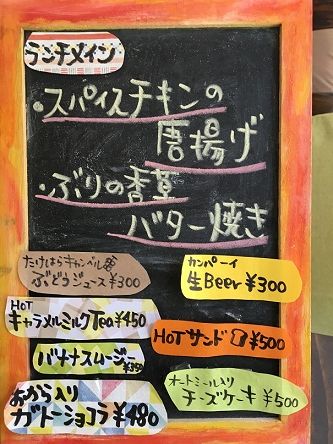 ランチメイン
・スパイスチキンの
唐揚げ
・ぶりの香草
バター焼き
たけはらキャンベル
ぶどうジュース ¥300
カンパーイ
生Beer ¥300
HOT
キャラメルミルクTea ¥450
HOTサンド ¥500
バナナスムージー
¥350
おから入り
ガトーショコラ ¥480
オートミール入り
チーズケーキ ¥500